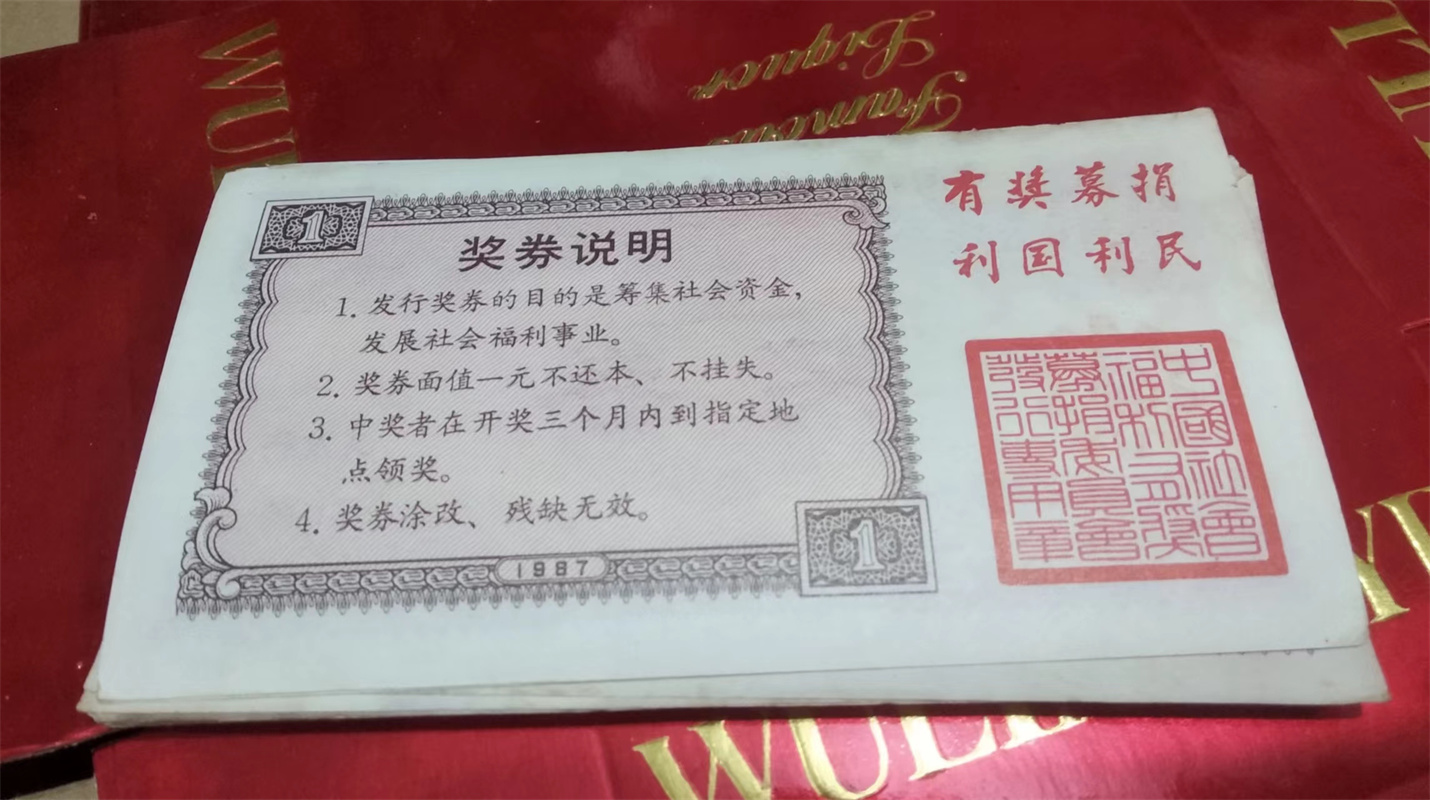 WU
Famous
Liquor
1
奖券说明
1. 发行奖券的目的是筹集社会资金,
发展社会福利事业。
2. 奖券面值一元不还本、不挂失。
3. 中奖者在开奖三个月内到指定地
点领奖。
4. 奖券涂改、残缺无效。
1987
1
有奖募捐
利国利民
中國社會
福利有獎
募捐委員會
發行專用章
WUL